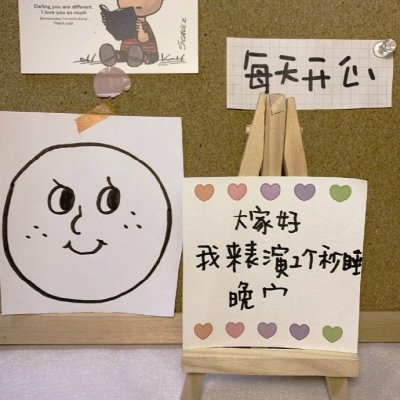 Darling, you are different.
I love you so much!
Thank you!
SCHULZ
每天开心
大家好
我来表演1个秒睡
晚宀